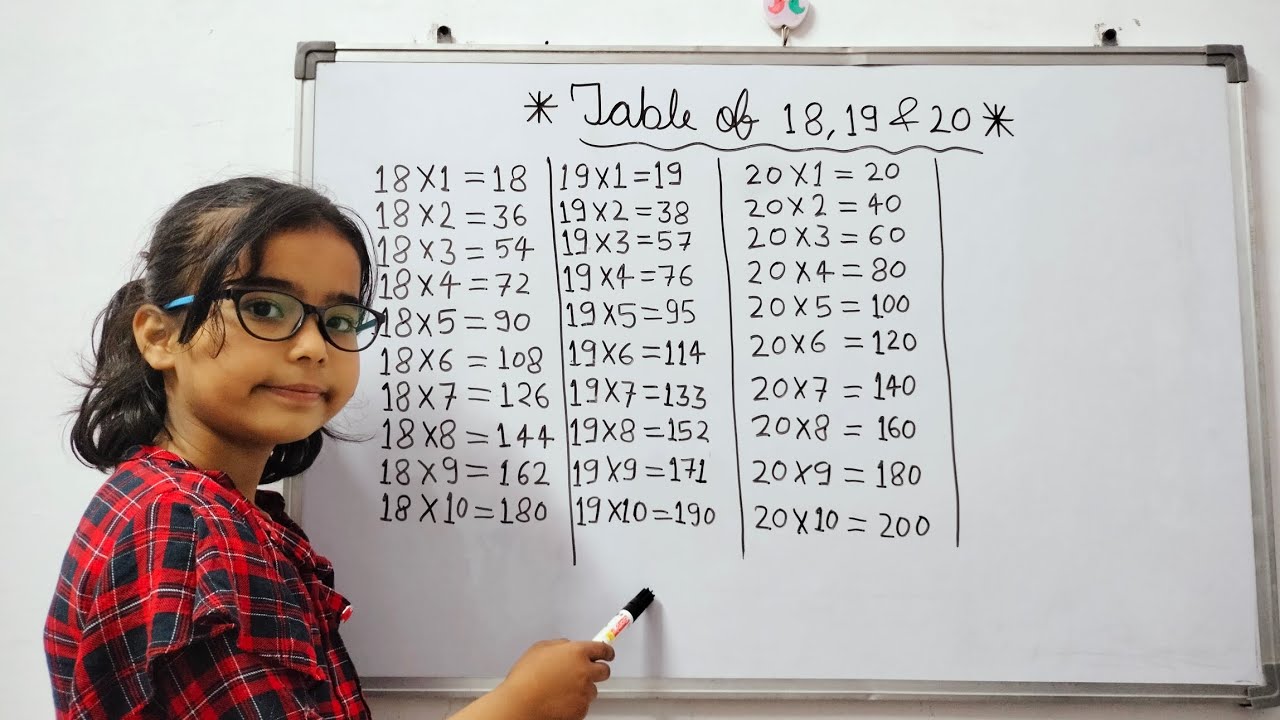 * Table of 18, 19 & 20 *
18 X 1 = 18
18 X 2 = 36
18 X 3 = 54
18 X 4 = 72
18 X 5 = 90
18 X 6 = 108
18 X 7 = 126
18 X 8 = 144
18 X 9 = 162
18 X 10 = 180
19 X 1 = 19
19 X 2 = 38
19 X 3 = 57
19 X 4 = 76
19 X 5 = 95
19 X 6 = 114
19 X 7 = 133
19 X 8 = 152
19 X 9 = 171
19 X 10 = 190
20 X 1 = 20
20 X 2 = 40
20 X 3 = 60
20 X 4 = 80
20 X 5 = 100
20 X 6 = 120
20 X 7 = 140
20 X 8 = 160
20 X 9 = 180
20 X 10 = 200